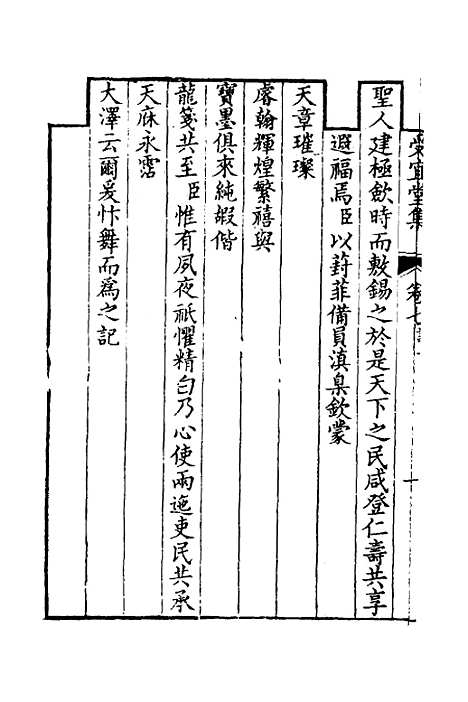 宜堂集 卷七
聖人建極歛時而敷錫之於是天下之民咸登仁壽共享
遐福焉臣以葑菲備員滇臬欽蒙
天章璀璨
睿翰輝煌繁禧與
寶墨俱來純嘏偕
龍箋共至臣惟有夙夜祗懼精白乃心使兩迤吏民共承
天庥永霑
大澤云爾爰忭舞而爲之記